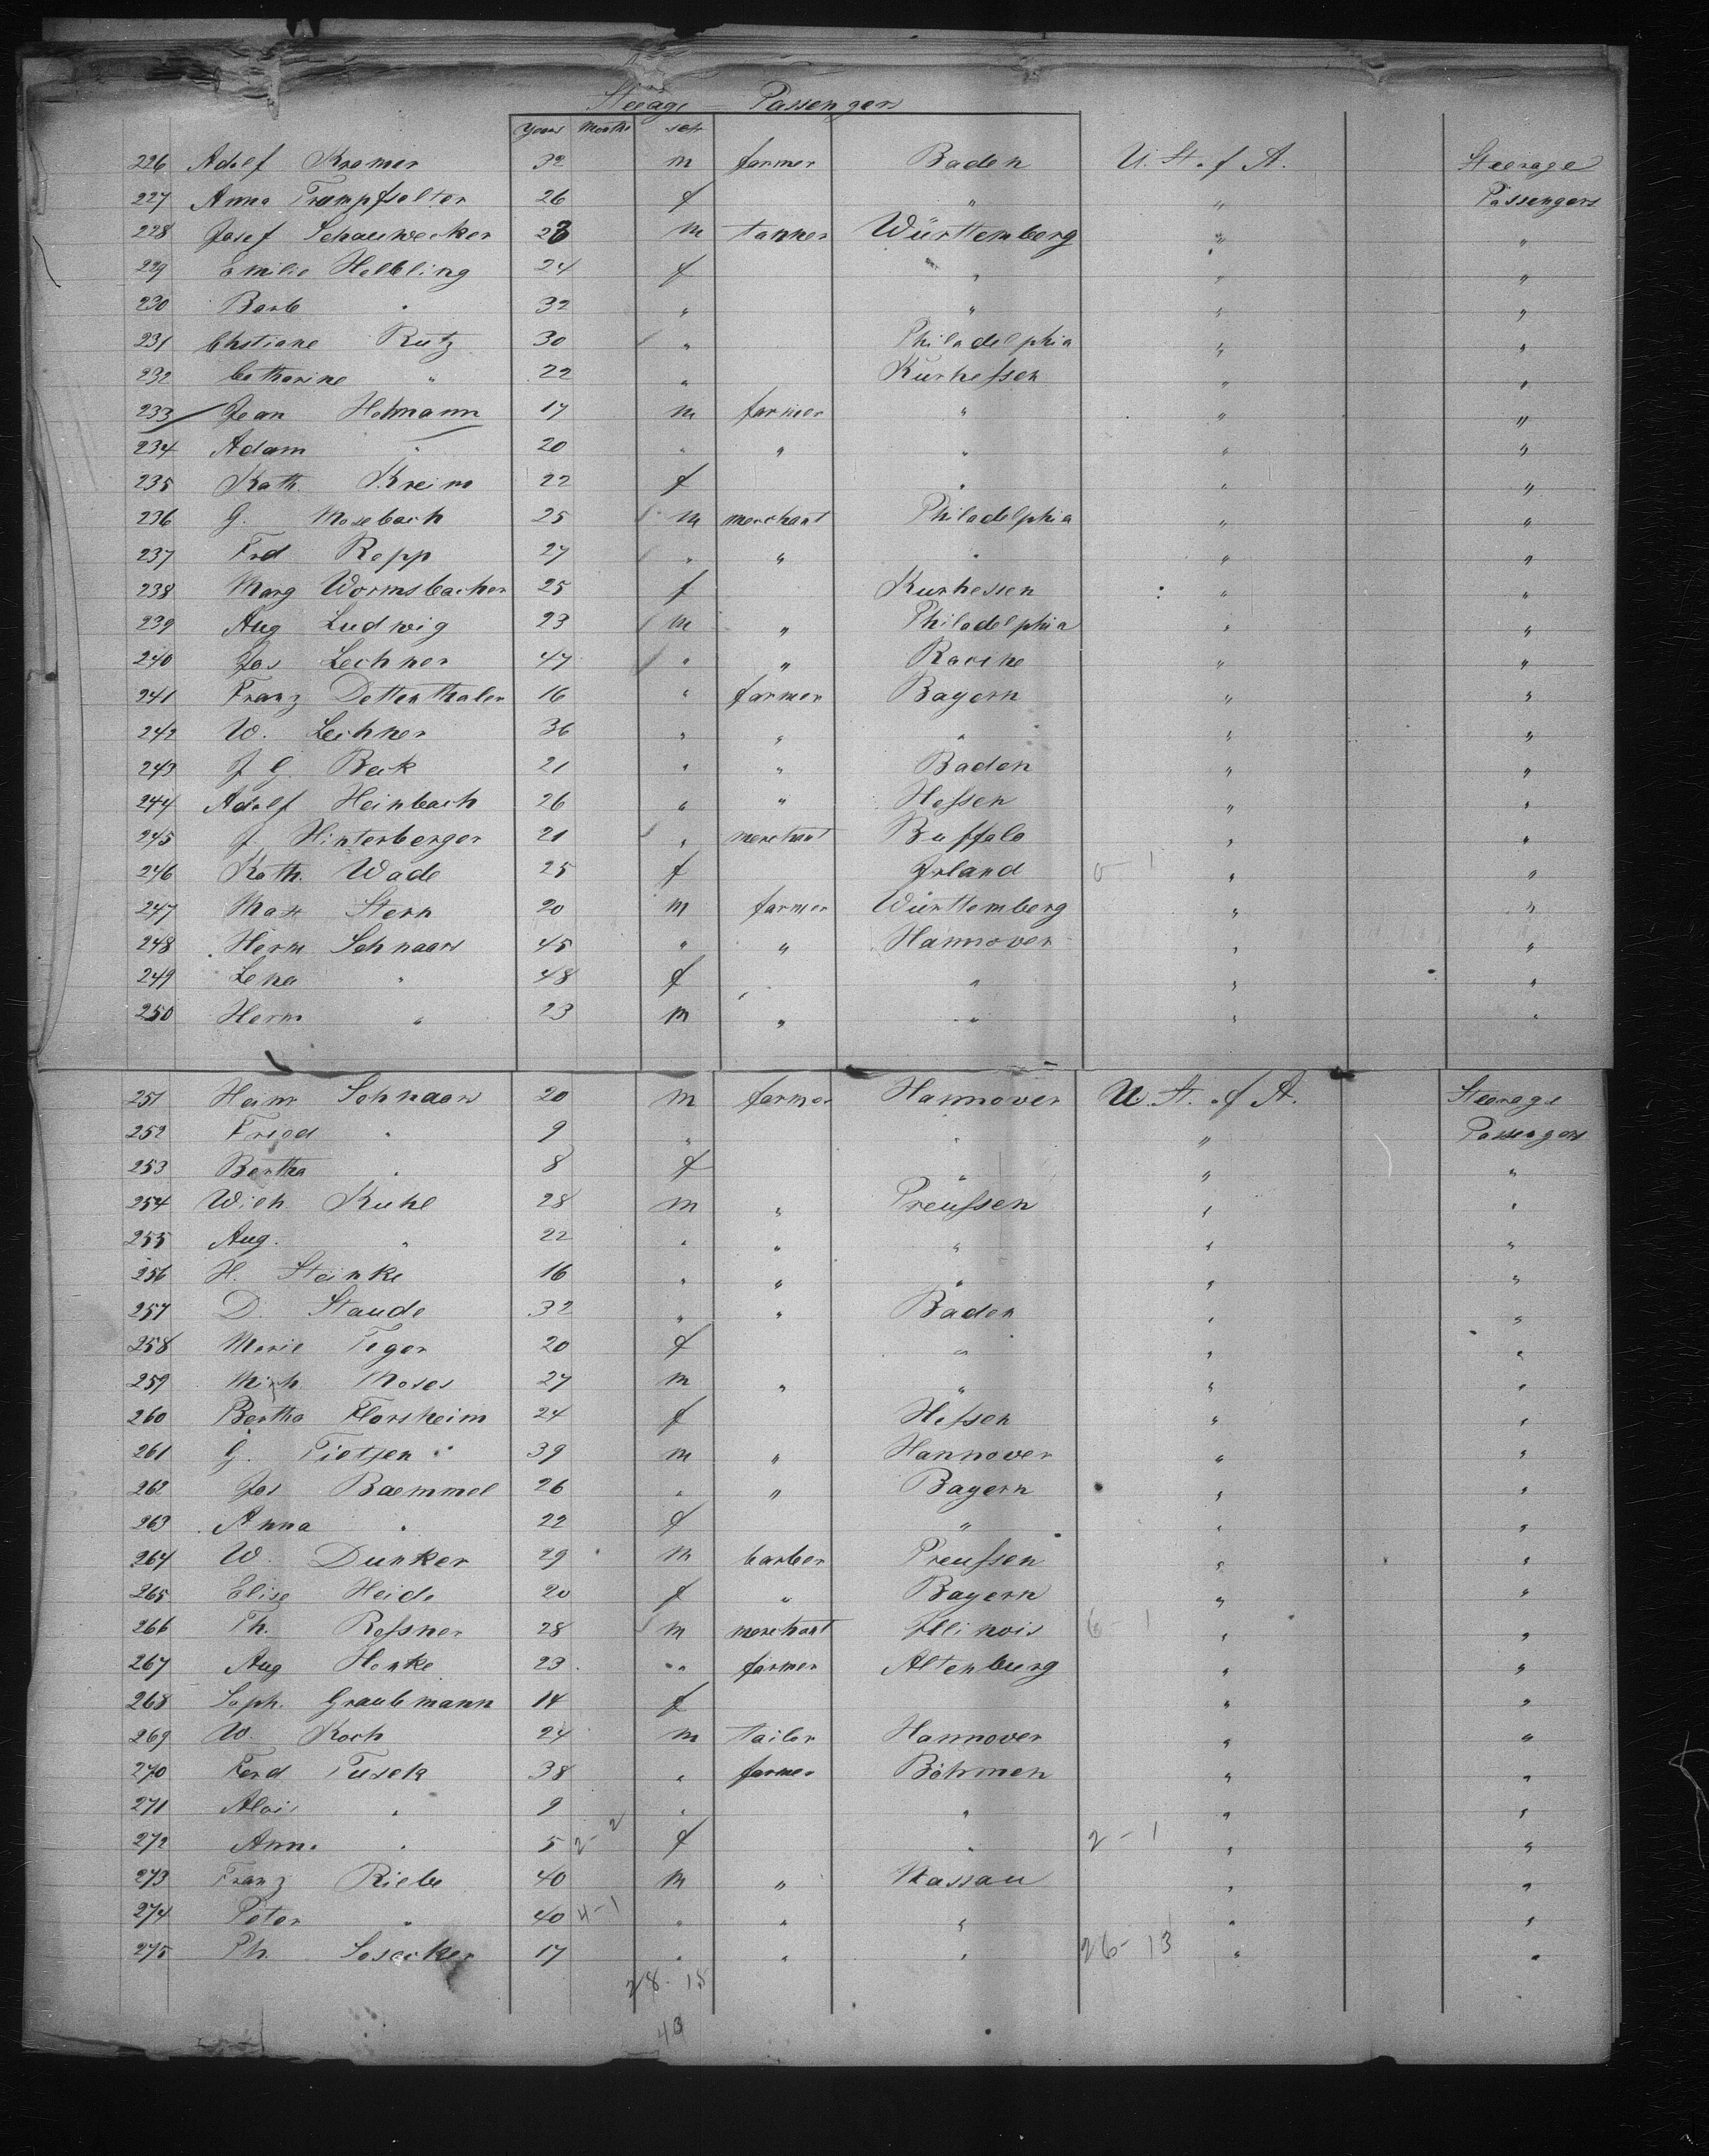 Steerage Passengers
Years Months sex
226 Adolf Kramer 32 m farmer Baden U. St. of A. Steerage
227 Anna Trampfsolter 26 f " " Passengers
228 Josef Schauwecker 28 m tanner Württemberg " "
229 Emilie Helbling 24 f " " "
230 Barb " 32 " " " "
231 Chstiane Rutz 30 " Philadelphia " "
232 Catharine " 22 " Kurhessen " "
233 Jean Hofmann 17 m farmer " " "
234 Adam " 20 " " " " "
235 Kath. Kreim 22 f " " "
236 G. Mosebach 25 m merchant Philadelphia " "
237 Frd Ropp 27 " " " " "
238 Marg Wormsbacher 25 f Kurhessen " "
239 Aug Ludwig 23 m " Philadelphia " "
240 Jos Lechner 47 " " Racine " "
241 Franz Dettenthaler 16 " farmer Bayern " "
242 W. Lechner 36 " " " " "
243 J G. Beck 21 " " Baden " "
244 Adolf Heinbach 26 " " Hessen " "
245 J. Hinterberger 21 " merchant Buffalo " "
246 Kath. Wade 25 f Irland 0 - 1 " "
247 Max Stern 20 m farmer Württemberg " "
248 Herm Schnaars 45 " " Hannover " "
249 Lena " 48 f " " "
250 Herm " 23 m " " " "
251 Heinr Schnaars 20 m farmer Hannover U. St. of A. Steerage
252 Fried " 9 " " " Passengers
253 Bertha " 8 f " " "
254 Wilh Kuhl 28 m " Preussen " "
255 Aug. " 22 " " " " "
256 H. Steinke 16 " " " " "
257 D. Staude 32 " " Baden " "
258 Marie Teger 20 f " " "
259 Mich Moses 27 m " " " "
260 Bertha Florsheim 24 f Hessen " "
261 G. Tietjen 39 m " Hannover " "
262 Jos Baemmel 26 " " Bayern " "
263 Anna " 22 f " " "
264 W. Dunker 29 m barber Preussen " "
265 Elise Heide 20 f " Bayern " "
266 Th. Rossner 28 m merchant Illinois 6 - 1 " "
267 Aug Henke 23 " farmer Altenburg " "
268 Soph. Graubmann 14 f " "
269 W. Koch 24 m tailor Hannover " "
270 Ferd Tusek 38 " farmer Böhmen " "
271 Alois " 9 " " " "
272 Anna " 5 2-2 f " 2 - 1 " "
273 Franz Riebe 40 m " Nassau " "
274 Peter " 40 4-1 " " " " "
275 Ph. 17 " " " 26-13 " "
28-15
43